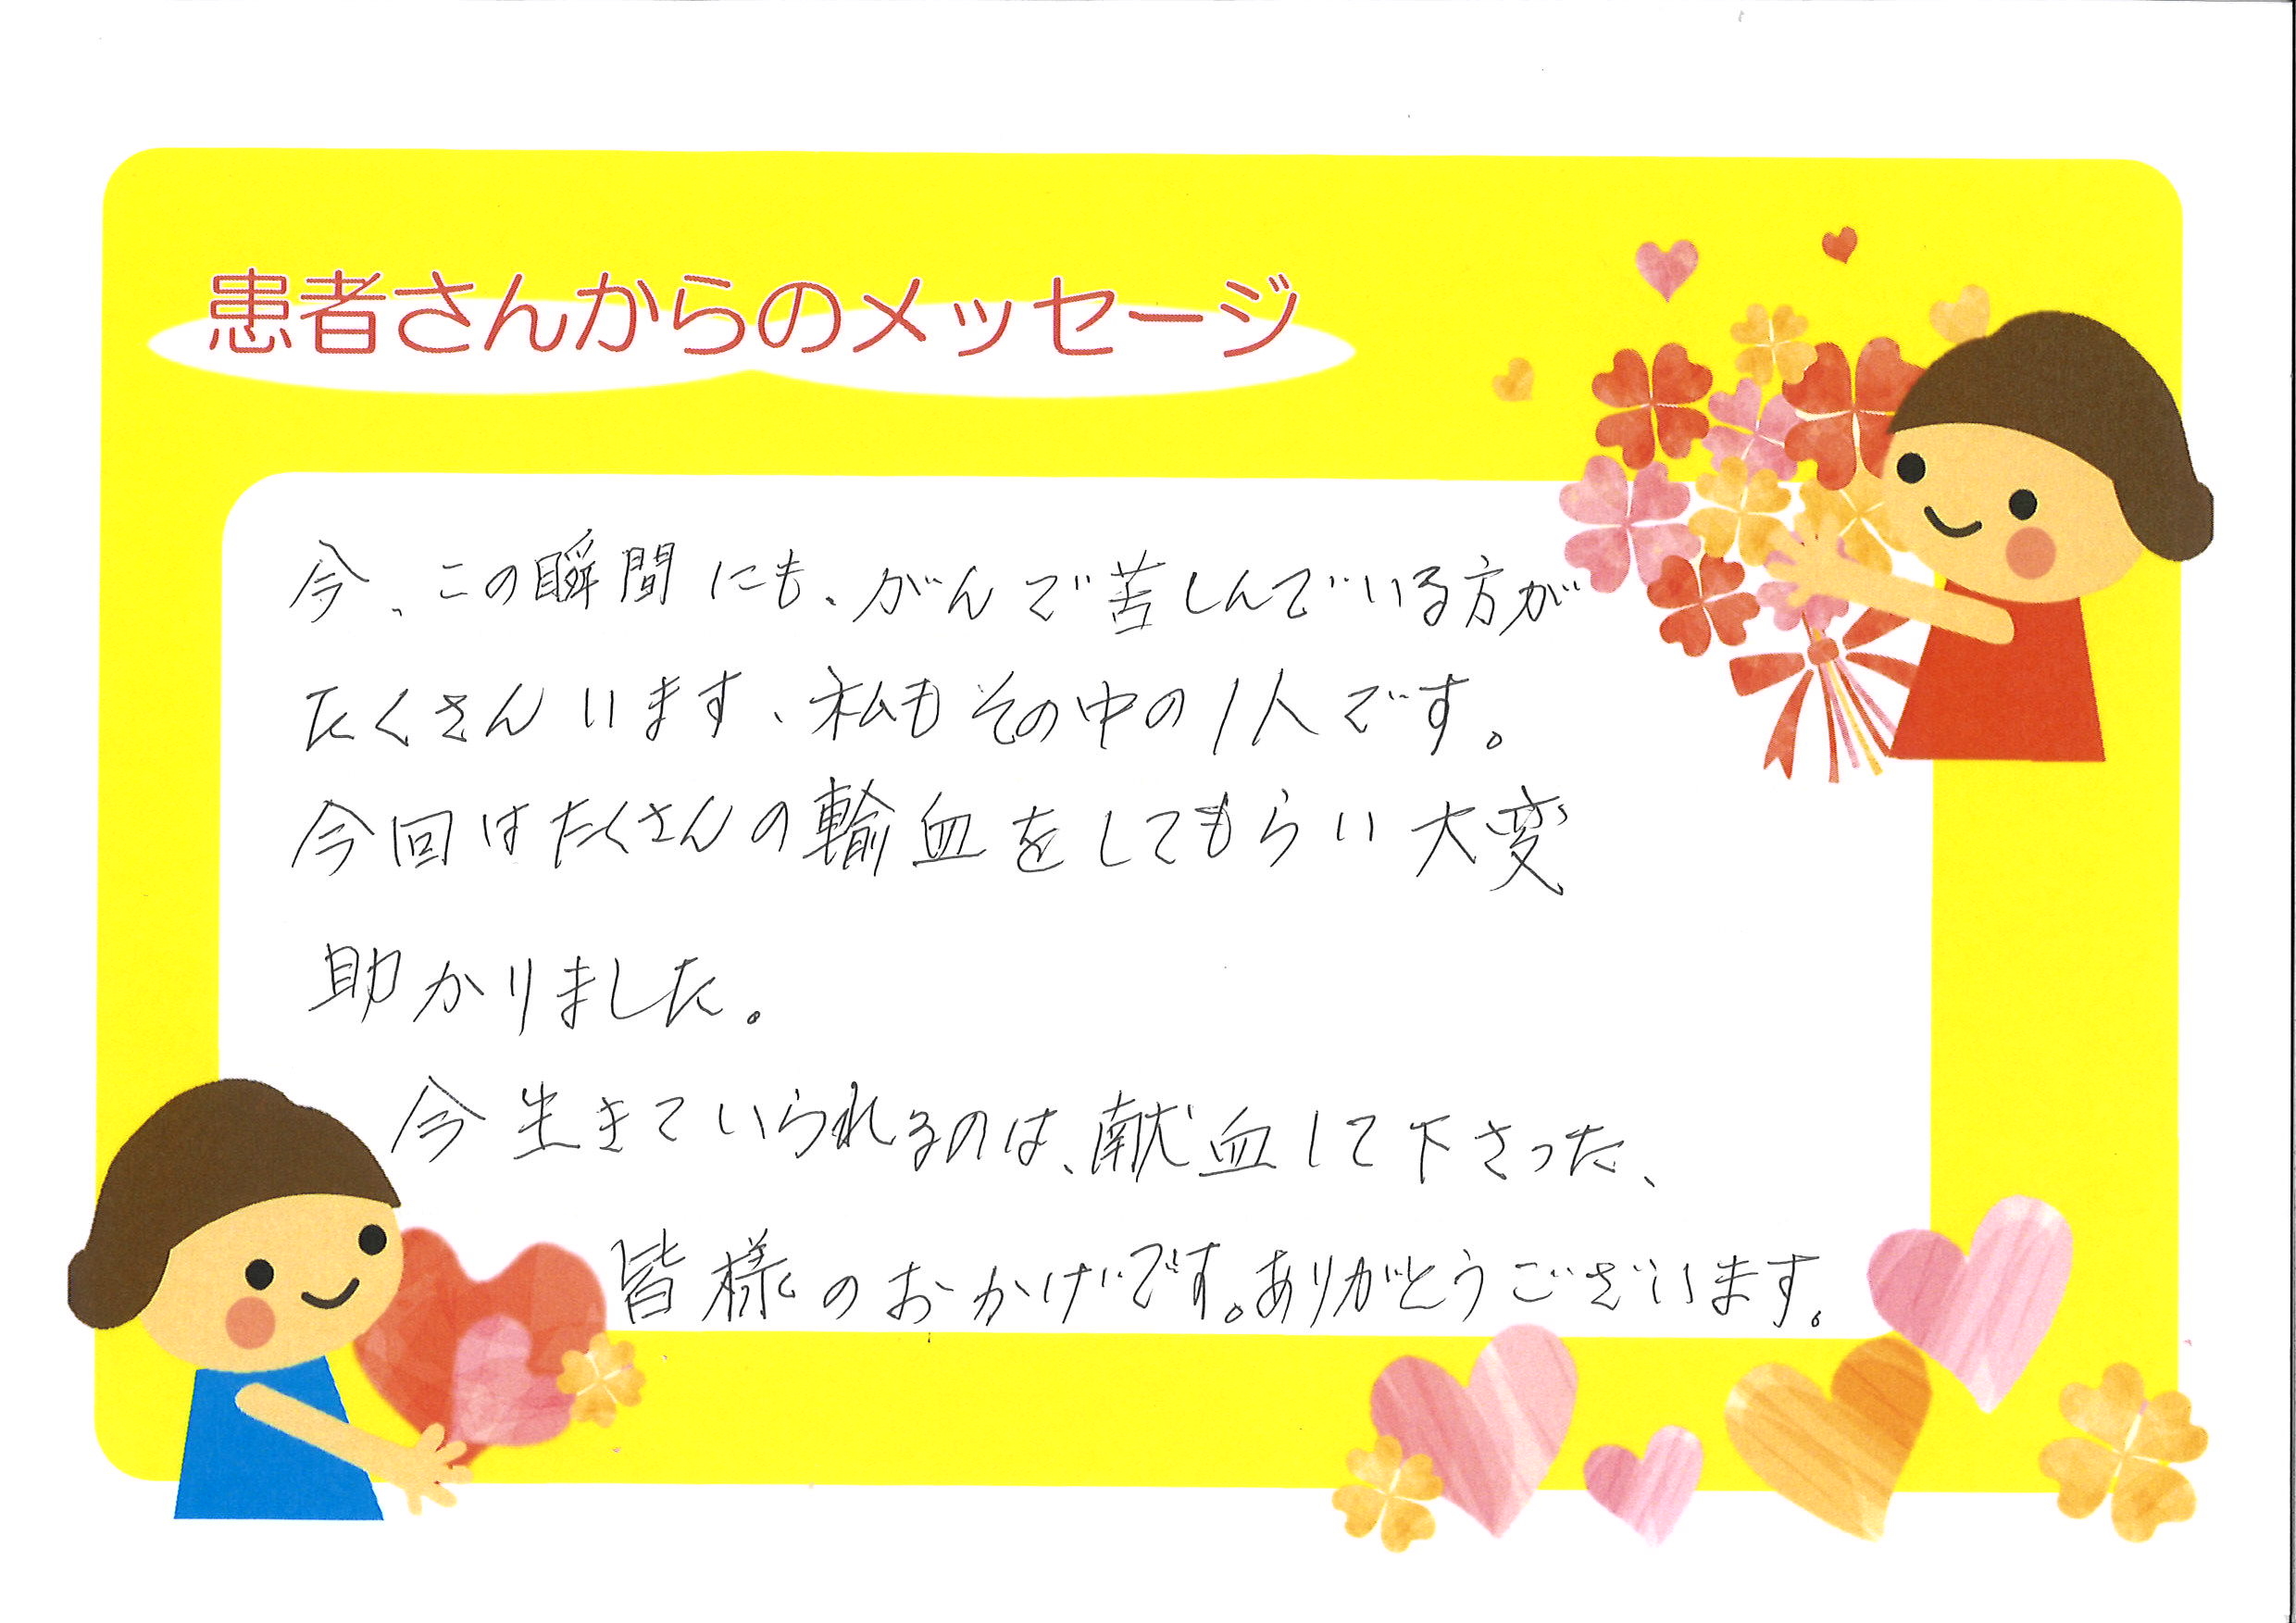 患者さんからのメッセージ
今、この瞬間にも、がんで苦しんでいる方が
たくさんいます、私もその中の1人です。
今回はたくさんの輸血をしてもらい大変
助かりました。
今生きていられるのは、献血して下さった、
皆様のおかげです。ありがとうございます。